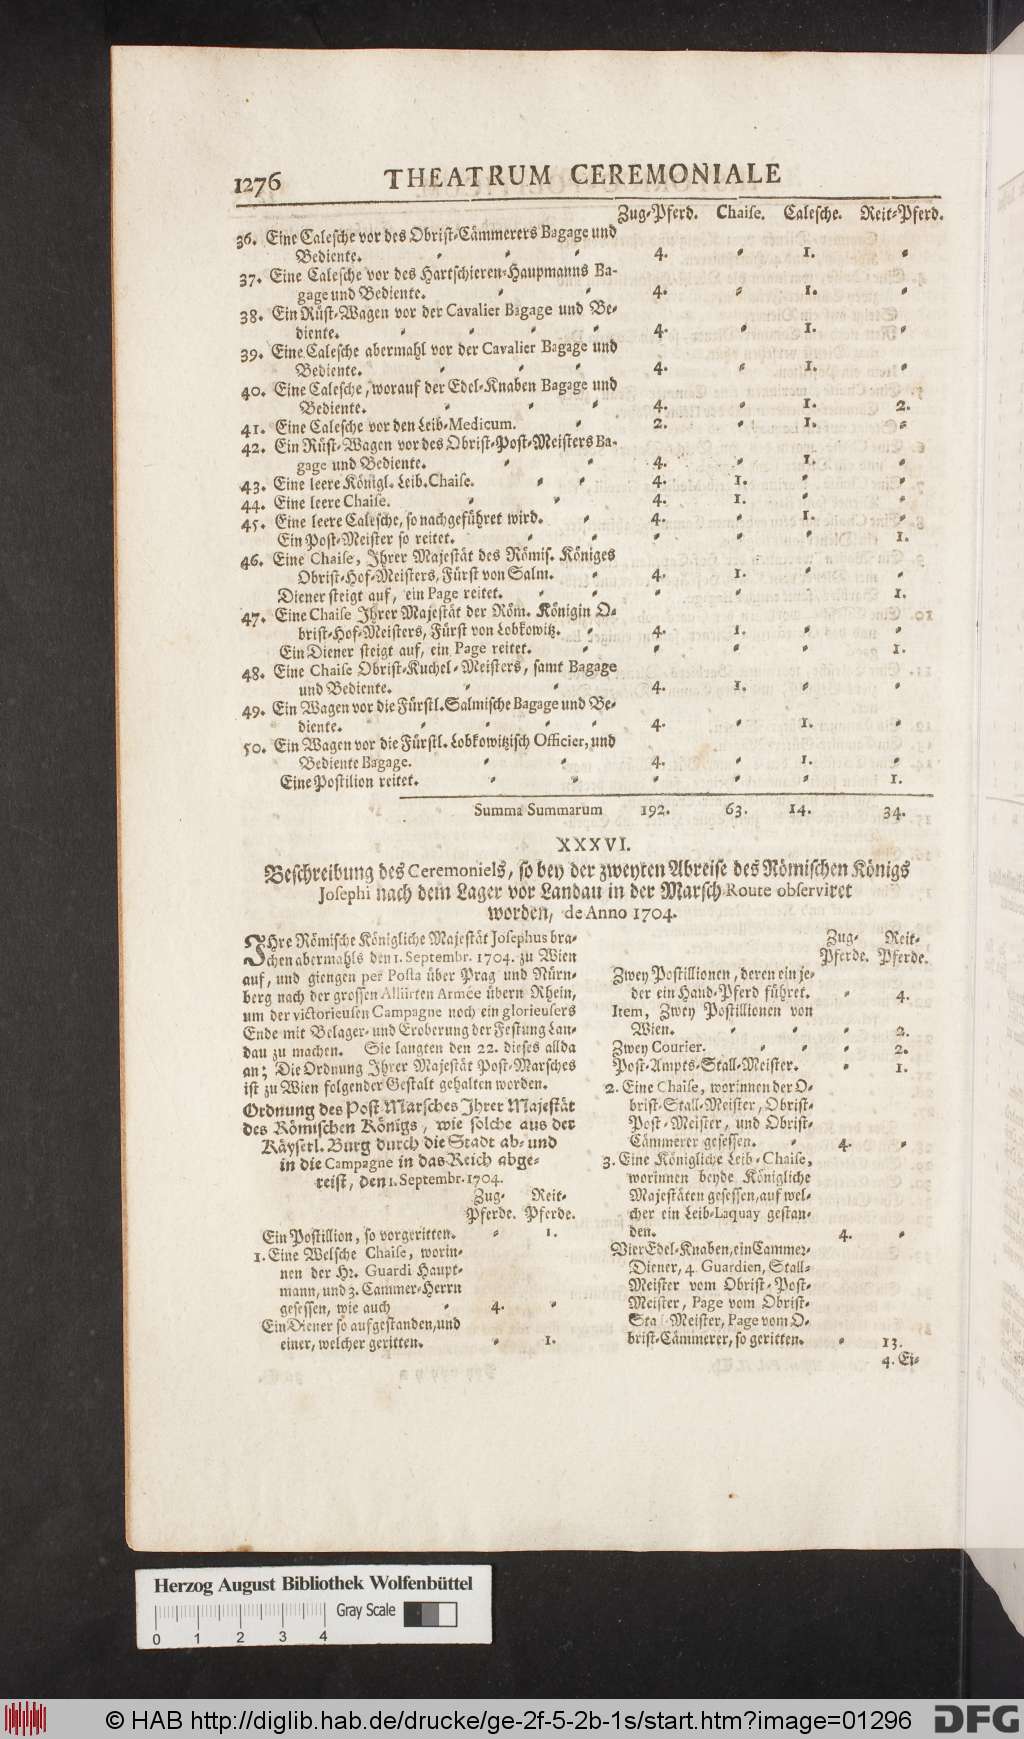 1276 THEATRUM CEREMONIALE
Zug-Pferd. Chaise. Calesche. Reit-Pferd.
36. Eine Calesche vor des Obrist-Cämmerers Bagage und
Bediente. 4. 1.
37. Eine Calesche vor des Hartschieren-Haupmanns Ba-
gage und Bediente. 4. 1.
38. Ein Rüst-Wagen vor der Cavalier Bagage und Be-
diente. 4. 1.
39. Eine Calesche abermahl vor der Cavalier Bagage und
Bediente. 4. 1.
40. Eine Calesche, worauf der Edel-Knaben Bagage und
Bediente. 4. 1. 2.
41. Eine Calesche vor den Leib-Medicum. 2. 1.
42. Ein Rüst-Wagen vor des Obrist-Post-Meisters Ba-
gage und Bediente. 4. 1.
43. Eine leere Königl. Leib-Chaise. 4. 1.
44. Eine leere Chaise. 4. 1.
45. Eine leere Calesche, so nachgeführet wird. 4. 1.
Ein Post-Meister so reitet. 1.
46. Eine Chaise, Ihrer Majestät des Römis. Königes
Obrist-Hof-Meisters, Fürst von Salm. 4. 1.
Diener steigt auf, ein Page reitet. 1.
47. Eine Chaise Ihrer Majestät der Röm. Königin O-
brist-Hof-Meisters, Fürst von Lobkowitz. 4. 1.
Ein Diener steigt auf, ein Page reitet. 1.
48. Eine Chaise Obrist-Kuchel-Meisters, samt Bagage
und Bediente. 4. 1.
49. Ein Wagen vor die Fürstl. Salmische Bagage und Be-
diente. 4. 1.
50. Ein Wagen vor die Fürstl. Lobkowitzisch Officier, und
Bediente Bagage. 4. 1.
Eine Postilion reitet. 1.
Summa Summarum 192. 63. 14. 34.
XXXVI.
Beschreibung des Ceremoniels, so bey der zweyten Abreise des Römischen Königs
Josephi nach dem Lager vor Landau in der Marsch-Route observiret
worden, de Anno 1704.
IHre Römische Königliche Majestät Josephus bra-
chen abermahls den 1. Septembr. 1704. zu Wien
auf, und giengen per Posta über Prag und Nürn-
berg nach der grossen Alliirten Armée übern Rhein,
um der victorieusen Campagne noch ein glorieusers
Ende mit Belager- und Eroberung der Festung Lan-
dau zu machen. Sie langten den 22. dieses allda
an; Die Ordnung Ihrer Majestät Post-Marsches
ist zu Wien folgender Gestalt gehalten worden.
Ordnung des Post-Marsches Ihrer Majestät
des Römischen Königs, wie solche aus der
Käyserl. Burg durch die Stadt ab- und
in die Campagne in das Reich abge-
reist, den 1. Septembr. 1704.
Zug- Reit-
Pferde. Pferde.
Ein Postillion, so vorgeritten. 1.
1. Eine Welsche Chaise, worin-
nen der Hr. Guardi Haupt-
mann, und 3. Cammer-Herrn
gesessen, wie auch 4.
Ein Diener so aufgestanden, und
einer, welcher geritten. 1.
Zug- Reit-
Pferde. Pferde.
Zwey Postillionen, deren ein je-
der ein Hand-Pferd führet. 4.
Item, Zwey Postillionen von
Wien. 2.
Zwey Courier. 2.
Post-Ampts-Stall-Meister. 1.
2. Eine Chaise, worinnen der O-
brist-Stall-Meister, Obrist-
Post-Meister, und Obrist-
Cämmerer gesessen. 4.
3. Eine Königliche Leib-Chaise,
worinnen beyde Königliche
Majestäten gesessen, auf wel-
cher ein Leib-Laquay gestan-
den. 4.
Vier Edel-Knaben, ein Cammer-
Diener, 4 Guardien, Stall-
Meister vom Obrist-Post-
Meister, Page vom Obrist-
Stall-Meister, Page vom O-
brist-Cämmerer, so geritten. 13.
4. Ei-
Herzog August Bibliothek Wolfenbüttel
Gray Scale
0 1 2 3 4
© HAB http://diglib.hab.de/drucke/ge-2f-5-2b-1s/start.htm?image=01296 DFG